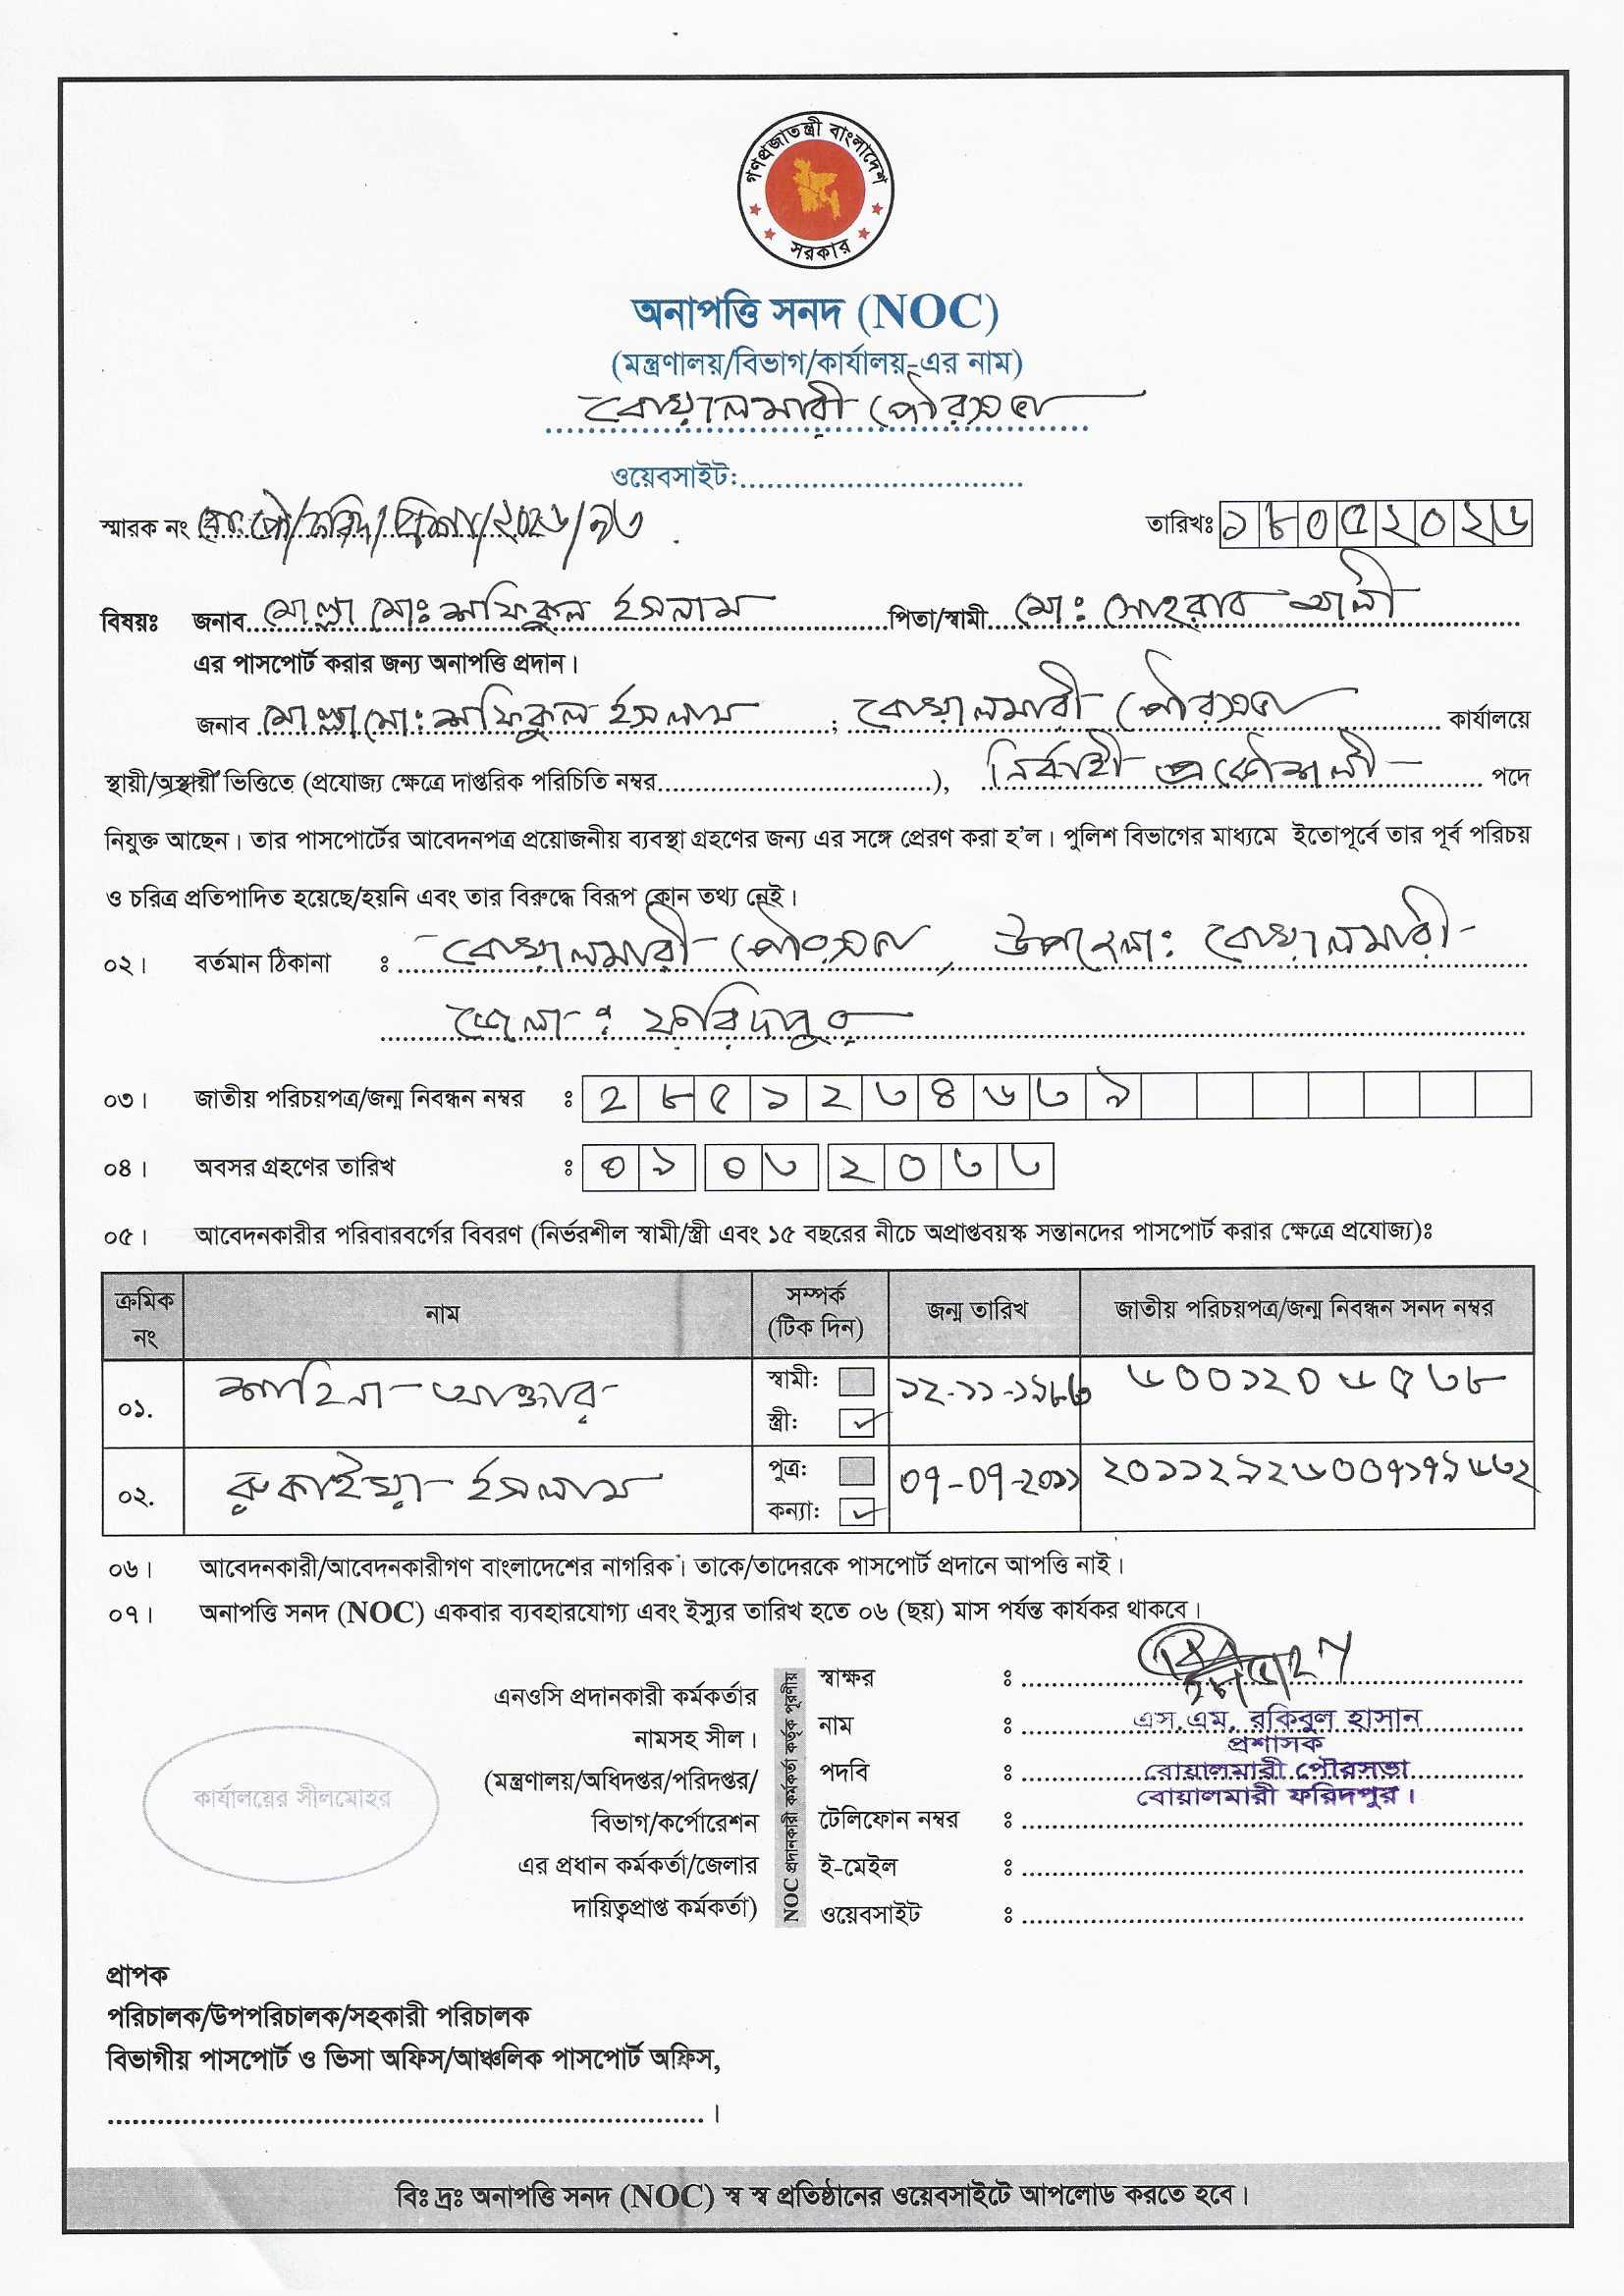 গণপ্রজাতন্ত্রী বাংলাদেশ
সরকার
অনাপত্তি সনদ (NOC)
(মন্ত্রণালয়/বিভাগ/কার্যালয়-এর নাম)
বোয়ালমারী পৌরসভা
ওয়েবসাইট:
স্মারক নং
তারিখঃ ১৮০৫২০২৬
বিষয়ঃ জনাব মোল্লা মোঃ শফিকুল ইসলাম পিতা/স্বামী মোঃ সোহরাব আলী
এর পাসপোর্ট করার জন্য অনাপত্তি প্রদান।
জনাব মোল্লা মোঃ শফিকুল ইসলাম, বোয়ালমারী পৌরসভা কার্যালয়ে
স্থায়ী/অস্থায়ী ভিত্তিতে (প্রযোজ্য ক্ষেত্রে দাপ্তরিক পরিচিতি নম্বর), নির্বাহী প্রকৌশলী পদে
নিযুক্ত আছেন। তার পাসপোর্টের আবেদনপত্র প্রয়োজনীয় ব্যবস্থা গ্রহণের জন্য এর সঙ্গে প্রেরণ করা হ'ল। পুলিশ বিভাগের মাধ্যমে ইতোপূর্বে তার পূর্ব পরিচয়
ও চরিত্র প্রতিপাদিত হয়েছে/হয়নি এবং তার বিরুদ্ধে বিরূপ কোন তথ্য নেই।
০২। বর্তমান ঠিকানা ঃ বোয়ালমারী পৌরসভা, উপজেলা: বোয়ালমারী
জেলা: ফরিদপুর
০৩। জাতীয় পরিচয়পত্র/জন্ম নিবন্ধন নম্বর ঃ ২৮৫১২৩৪৬৩৯
০৪। অবসর গ্রহণের তারিখ ঃ ০৯ ০৩ ২০৩৩
০৫। আবেদনকারীর পরিবারবর্গের বিবরণ (নির্ভরশীল স্বামী/স্ত্রী এবং ১৫ বছরের নীচে অপ্রাপ্তবয়স্ক সন্তানদের পাসপোর্ট করার ক্ষেত্রে প্রযোজ্য)ঃ
ক্রমিক নং নাম সম্পর্ক (টিক দিন) জন্ম তারিখ জাতীয় পরিচয়পত্র/জন্ম নিবন্ধন সনদ নম্বর
০১. শাহিনা আক্তার স্বামী: স্ত্রী: ✓ ১২-১১-১৯৮৩ ৬০০১২০৬৫৩৮
০২. রুকাইয়া ইসলাম পুত্র: কন্যা: ✓ ০৭-০৭-২০১১ ২০১১২৯২৬০০৭১৭৯৬৩২
০৬। আবেদনকারী/আবেদনকারীগণ বাংলাদেশের নাগরিক। তাকে/তাদেরকে পাসপোর্ট প্রদানে আপত্তি নাই।
০৭। অনাপত্তি সনদ (NOC) একবার ব্যবহারযোগ্য এবং ইস্যুর তারিখ হতে ০৬ (ছয়) মাস পর্যন্ত কার্যকর থাকবে।
কার্যালয়ের সীলমোহর
এনওসি প্রদানকারী কর্মকর্তার
নামসহ সীল।
(মন্ত্রণালয়/অধিদপ্তর/পরিদপ্তর/
বিভাগ/কর্পোরেশন
এর প্রধান কর্মকর্তা/জেলার
দায়িত্বপ্রাপ্ত কর্মকর্তা)
NOC প্রদানকারী কর্মকর্তা কর্তৃক পূরণীয়
স্বাক্ষর ঃ
নাম ঃ এস.এম. রকিবুল হাসান
প্রশাসক
পদবি ঃ বোয়ালমারী পৌরসভা
বোয়ালমারী ফরিদপুর।
টেলিফোন নম্বর ঃ
ই-মেইল ঃ
ওয়েবসাইট ঃ
প্রাপক
পরিচালক/উপপরিচালক/সহকারী পরিচালক
বিভাগীয় পাসপোর্ট ও ভিসা অফিস/আঞ্চলিক পাসপোর্ট অফিস,
।
বিঃ দ্রঃ অনাপত্তি সনদ (NOC) স্ব স্ব প্রতিষ্ঠানের ওয়েবসাইটে আপলোড করতে হবে।